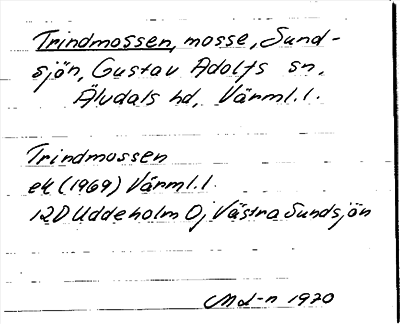 Trindmossen, mosse, Sund-
sjön, Gustav Adolfs sn,
Älvdals hd, Värml. l.
Trindmossen
ek (1969) Värml. l.
12D Uddeholm Oj Västra Sundsjön
1970